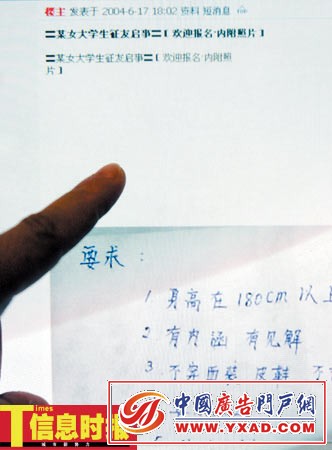 楼主 发表于 2004-6-17 18:02 资料 短消息
〓某女大学生征友启事〓【 欢迎报名·内附照片 】
〓某女大学生征友启事〓【 欢迎报名·内附照
片 】
要求：
1 身高在 180cm 以上
2 有内涵 有见解
3 不穿西装 皮鞋
Times
信息时报
中國廣告門戶網
www.YXAD.com